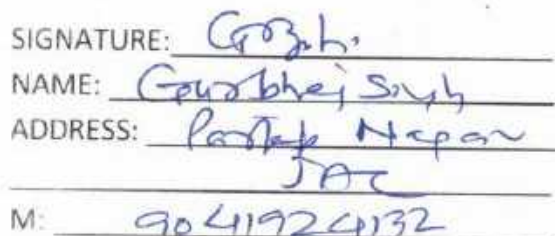 SIGNATURE:
NAME: Gourbhej Singh
ADDRESS: Partap Nagar
JAC
M: 9041924132